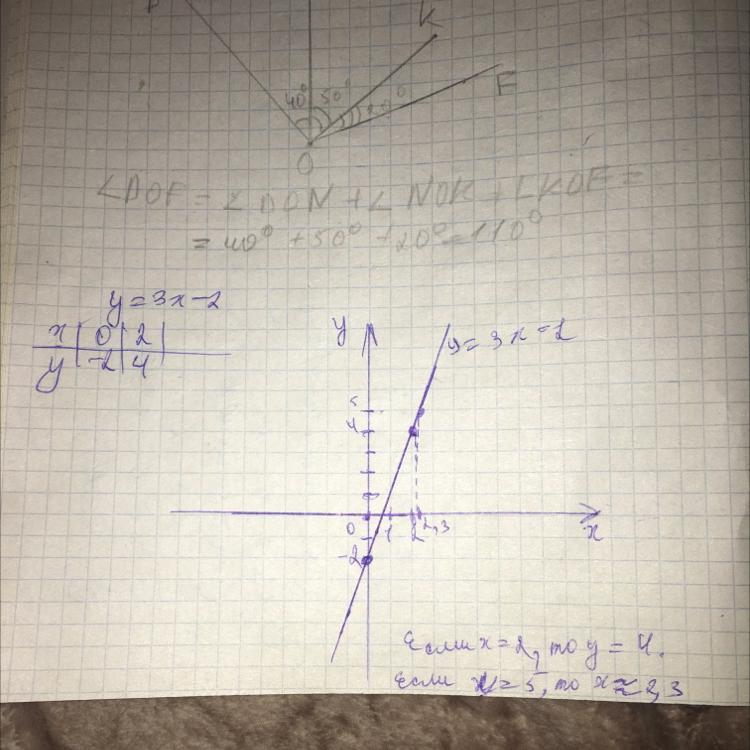 K
40° 50° 20°
F
O
∠DOF = ∠DON + ∠NOK + ∠KOF =
= 40° + 50° + 20° = 110°
y = 3x - 2
x | 0 | 2 |
y | -2 | 4 |
y
y = 3x - 2
5
4
0 1 2 2,3
x
-2
Если x = 2, то y = 4.
Если y = 5, то x ≈ 2,3